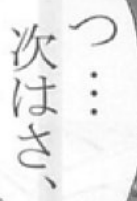 つ…
次はさ、